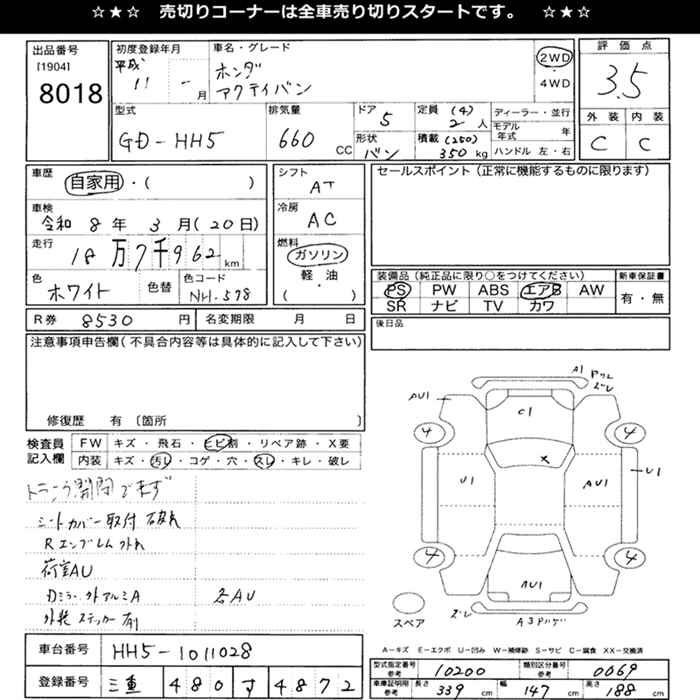 ☆★☆ 売切りコーナーは全車売り切りスタートです。 ☆★☆
出品番号
[1904]
8018
初度登録年月
平成
11 - 月
車名・グレード
ホンダ
アクティバン
2WD
4WD
評価点
3.5
外装 内装
C C
型式
GD-HH5
排気量
660 CC
ドア 5
形状
バン
定員 (4)
2 人
積載 (250)
350 kg
ディーラー・並行
モデル年式 年
ハンドル 左・右
車歴
自家用・( )
車検
令和 8 年 3 月 (20日)
走行
18万7千962 km
色
ホワイト
色替
色コード
NH-578
シフト
AT
冷房
AC
燃料
ガソリン
軽・油
( )
セールスポイント (正常に機能するものに限ります)
装備品 (純正品に限り○をつけてください)
PS PW ABS エアB AW
SR ナビ TV カワ
新車保証書
有・無
R券 8530 円
名変期限 月 日
後日品
注意事項申告欄(不具合内容等は具体的に記入して下さい)
修復歴 有 〔箇所 〕
検査員
記入欄
FW キズ・飛石・ヒビ割・リペア跡・X要
内装 キズ・汚レ・コゲ・穴・スレ・キレ・破レ
シートカバー取付 破れ
Rエンブレム外れ
荷室AU
各AU
外装 ステッカー有
A1
ズレ
AU1
C1
4 4
×
U1 AU1 U1
4 4
AU1
スペア
ズレ
A-キズ E-エクボ U-凹み W-補修跡 S-サビ C-腐食 XX-交換済
車台番号
HH5-1011028
登録番号
三重 480 す 4872
型式指定番号
参考
10200
類別区分番号
参考
0069
車両証明用
参考
長さ 339 cm
幅 147 cm
高さ 188 cm